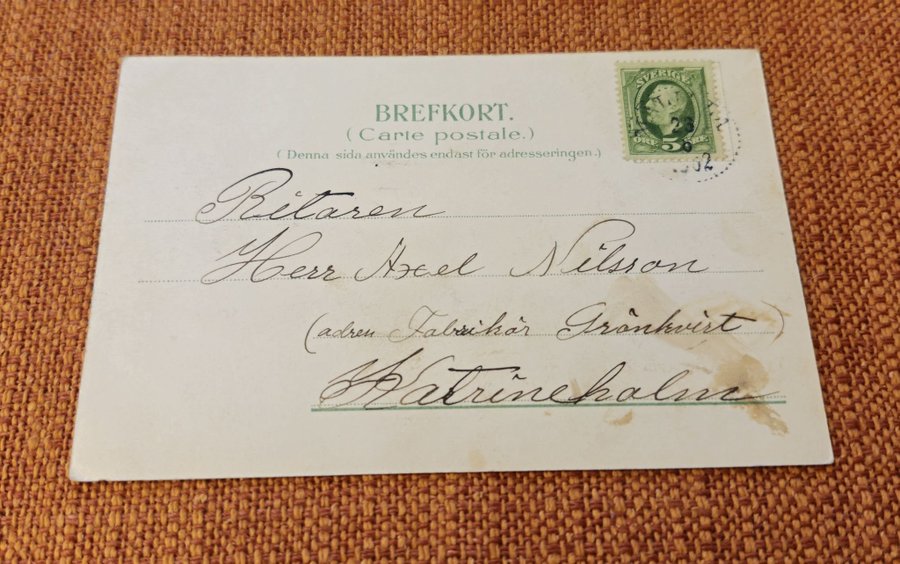 BREFKORT.
(Carte postale.)
(Denna sida användes endast för adresseringen.)
SVERIGE
ÖRE 5 ÖRE
1902
Ritaren
Herr Axel Nilsson
(adren Fabrikör Grönkvist)
Katrineholm